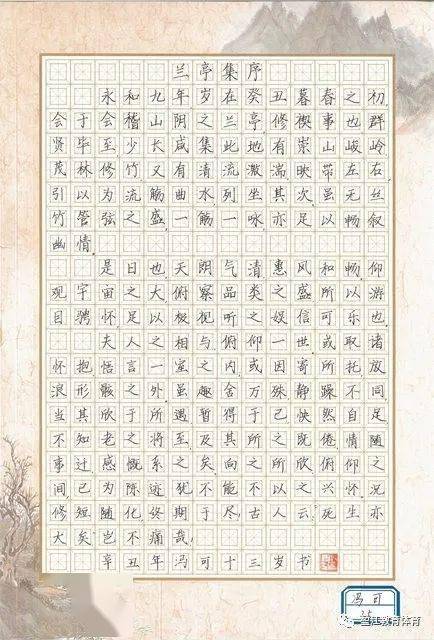 兰亭集序
永和九年岁在癸丑暮春之初,
会于会稽山阴之兰亭,修禊事也,群
贤毕至,少长咸集,此地有崇山峻岭
茂林修竹又有清流激湍映带左右,
引以为流觞曲水,列坐其次,虽无丝
竹管弦之盛,一觞一咏,亦足以畅叙
幽情,
是日也,天朗气清惠风和畅,仰
观宇宙之大,俯察品类之盛,所以游
目骋怀足以极视听之娱,信可乐也,
夫人之相与,俯仰一世,或取诸
怀抱悟言一室之内,或因寄所托放
浪形骸之外,虽趣舍万殊,静躁不同,
当其欣于所遇,暂得于己快然自足
不知老之将至,及其所之既倦,情随
事迁感慨系之矣,向之所欣俯仰之
间已为陈迹,犹不能不以之兴怀,况
修短随化,终期于尽,古人云:死生亦
大矣岂不痛哉!
辛丑年冯可十三岁书
冯可
教育体育